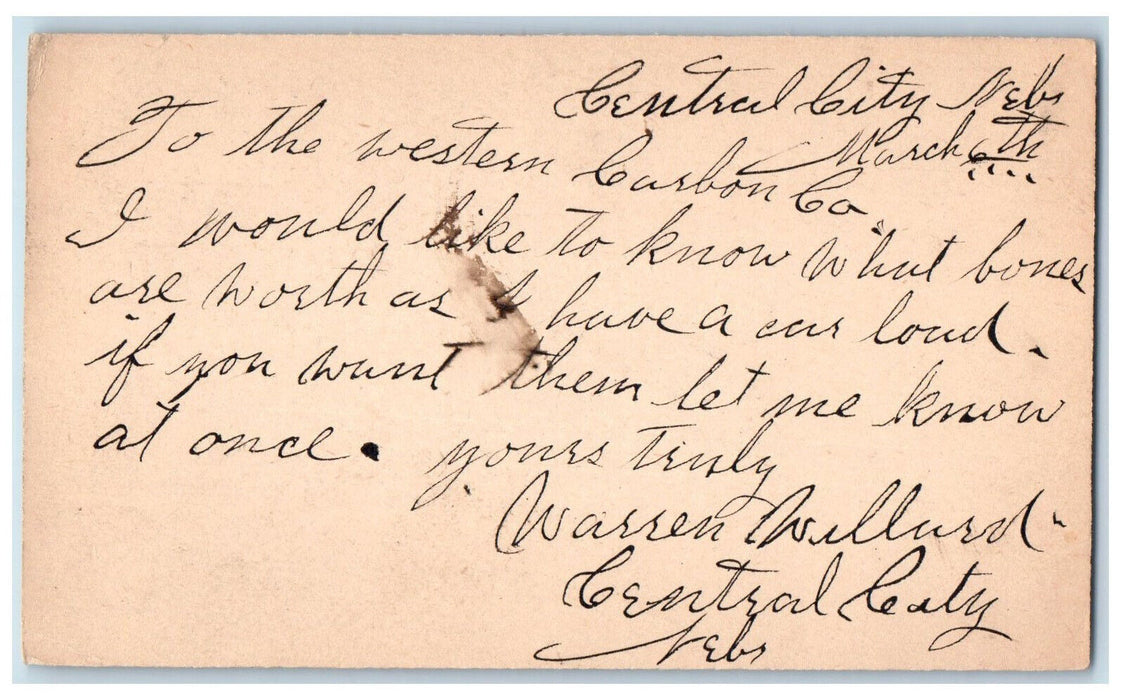 Central City Nebr
March 6th
To the western Carbon Co.
I would like to know what bones
are worth as I have a car load.
if you want them let me know
at once. yours Truly
Warren Willard
Central City
Nebr